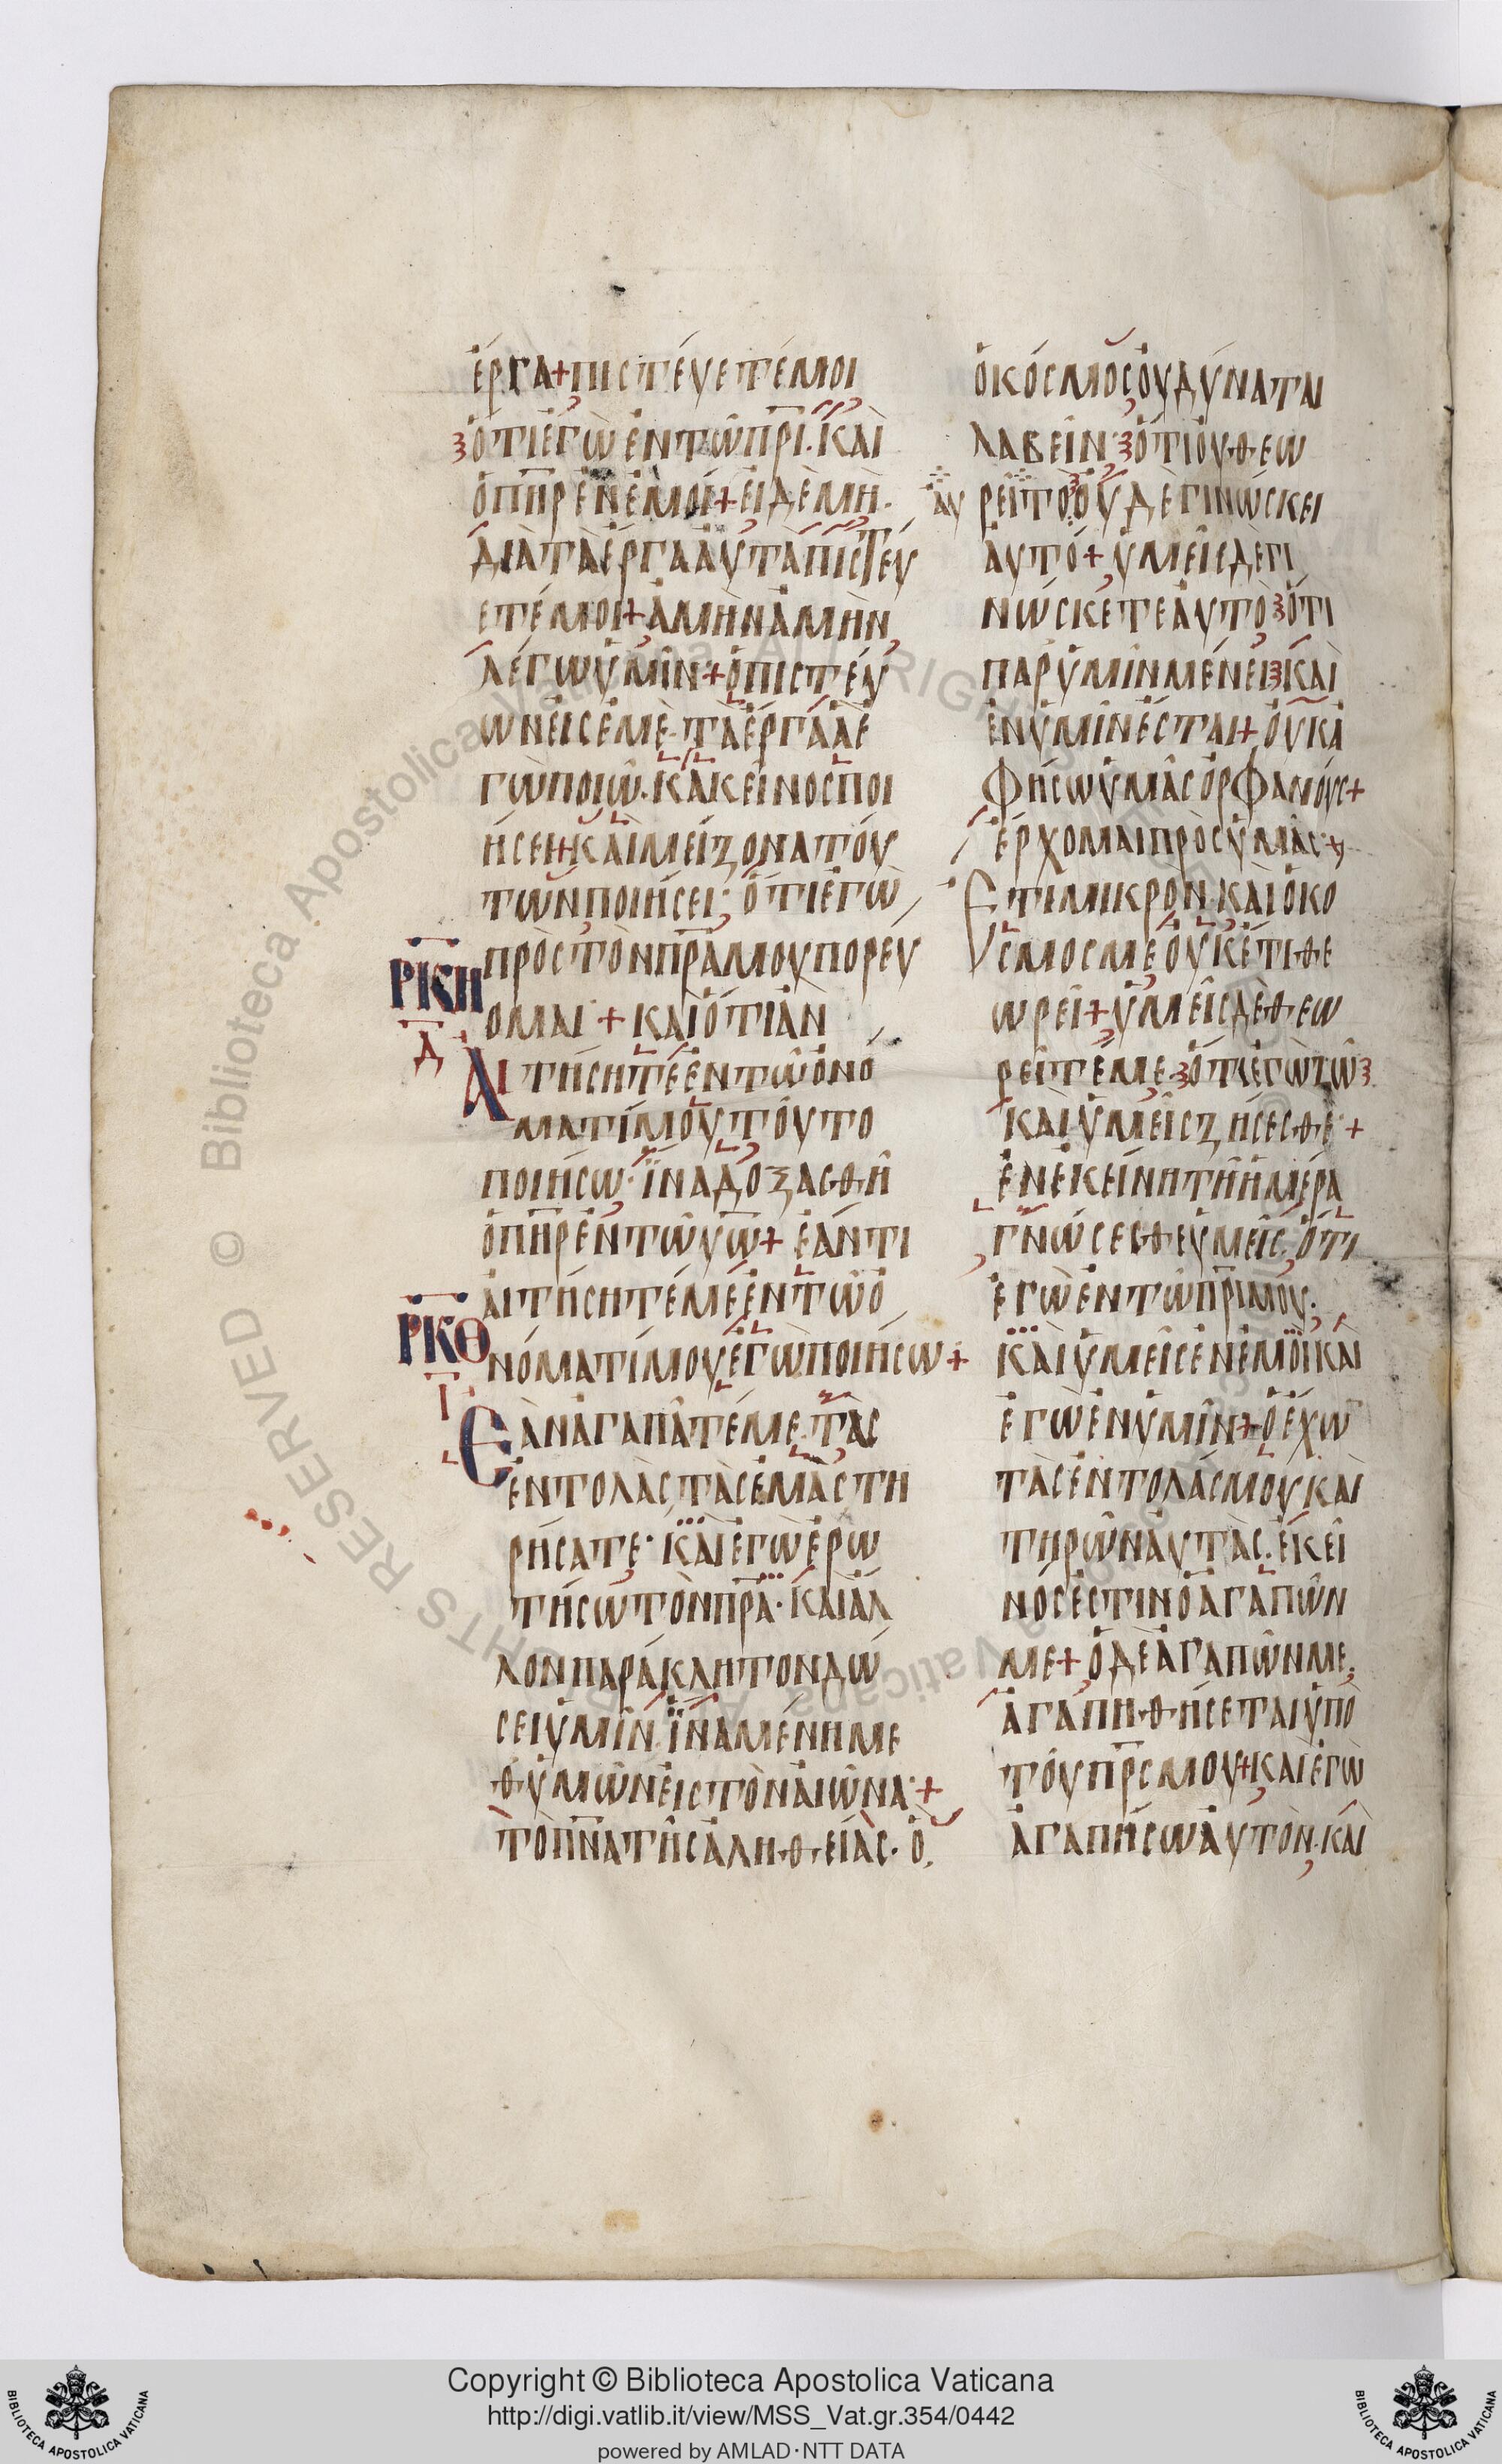 ἔργα+πιστέυετέμοι
ὅτιἐγὼἐντῶπρι.κὰι
ὁπηρἐνἐμοί+ἐιδὲμὴ.
διατὰἔργααὐτὰπιστέυ
ετέμοι+ἀμὴνἀμὴν
λέγωὑμῖν+ὁπιστέυ
ωνἐισἐμὲ.τὰἔργαἁἐ
γὼποιῶ.κἀκεῖνοσποι
ήσει+κὰιμείζονατόυ
τωνποιήσει· ὅτιἐγὼ
πρὸστὸνπραμουπορέυ
ΡΚΗ
Δ
ομαι + κὰιὅτιὰν
Αιτήσητεἐντῶὀνό
ματίμουτόυτο
ποιήσω· ἵναδοξασθῆ
ὁπηρἐντῶυω+ ἐάντι
ἀιτήσητέμεἐντῶὀ
ΡΚΘ
Ι
νόματίμουἐγὼποιήσω+
Ἐὰνἀγαπᾶτέμε.τὰσ
ἐντολὰστὰσἐμὰστη
ρήσατε· κὰιἐγὼἐρω
τήσωτὸνπρα· κὰιἄλ
λονπαράκλητονδώ
σειὑμῖν.ἵναμένημε
θὑμῶνἐιστὸναἰῶνα·+
τὸπνατῆσἀληθείασ. ὁ
ὁκόσμοσὀυδύναται
λαβεῖν· ὅτιὀυθεω
αυ ρεῖτὸὀυδὲγινώσκει
ἀυτό+ ὑμεῖσδεγι
νώσκετεἀυτὸ ὅτι
παρὑμῖνμένει κὰι
ἐνὑμῖνἔσται+ ὀυκἀ
φήσωὑμᾶσὀρφανόυσ+
ἔρχομαιπρὸσὑμᾶσ·+
Ἔτιμικρὸν.κὰιὁκό
σμοσμεὀυκέτιθε
ωρεῖ+ὑμεῖσδὲθεω
ρεῖτέμε. ὅτιἐγὼζῶ
κὰιὑμεῖσζήσεσθε·+
ἐνἐκείνητῆἡμέρα
γνώσεσθεὑμεῖσ, ὅτι
ἐγὼἐντῶπριμου·
κὰιὑμεῖσἐνἐμὸικὰι
ἐγὼἐνὑμῖν+ὁἔχω
τὰσἐντολάσμουκὰι
τηρῶνἀυτάσ.ἐκεῖ
νόσἐστινὁἀγαπῶν
με+ὁδὲἀγαπῶνμε
ἀγαπηθήσεταιὑπὸ
τόυπρσμου+κἀιἐγὼ
ἀγαπήσωἀυτὸν.κὰι
Copyright © Biblioteca Apostolica Vaticana
http://digi.vatlib.it/view/MSS_Vat.gr.354/0442
powered by AMLAD·NTT DATA
BIBLIOTECA APOSTOLICA VATICANA
BIBLIOTECA APOSTOLICA VATICANA